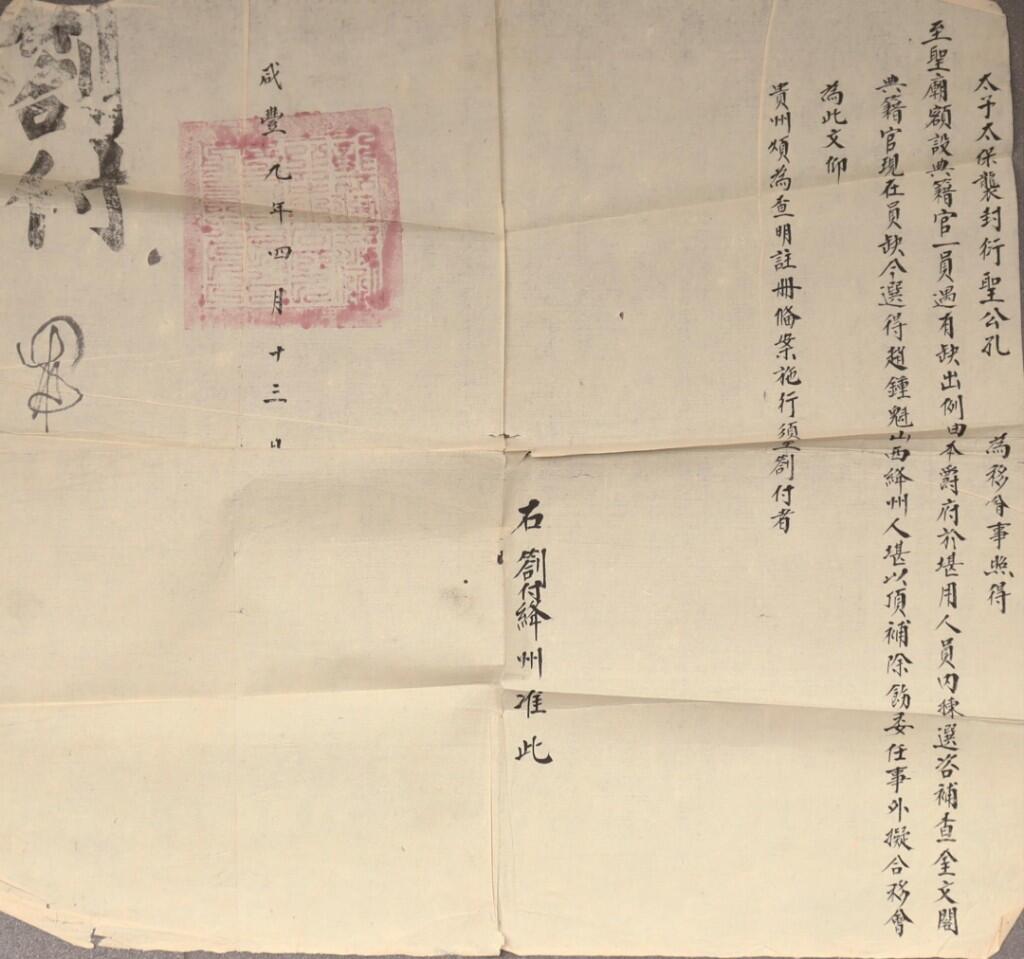 太子太保襲封衍聖公孔　為移會事照得
至聖廟額設典籍官一員遇有缺出例由本爵府於堪用人員内揀選咨補查奎文閣
典籍官現在員缺今選得趙鍾魁山西絳州人堪以頂補除飭委任事外擬合移會
為此文仰
貴州煩為查明註冊俻案施行須至劄付者
右劄付絳州准此
咸豐九年四月十三日
劄付